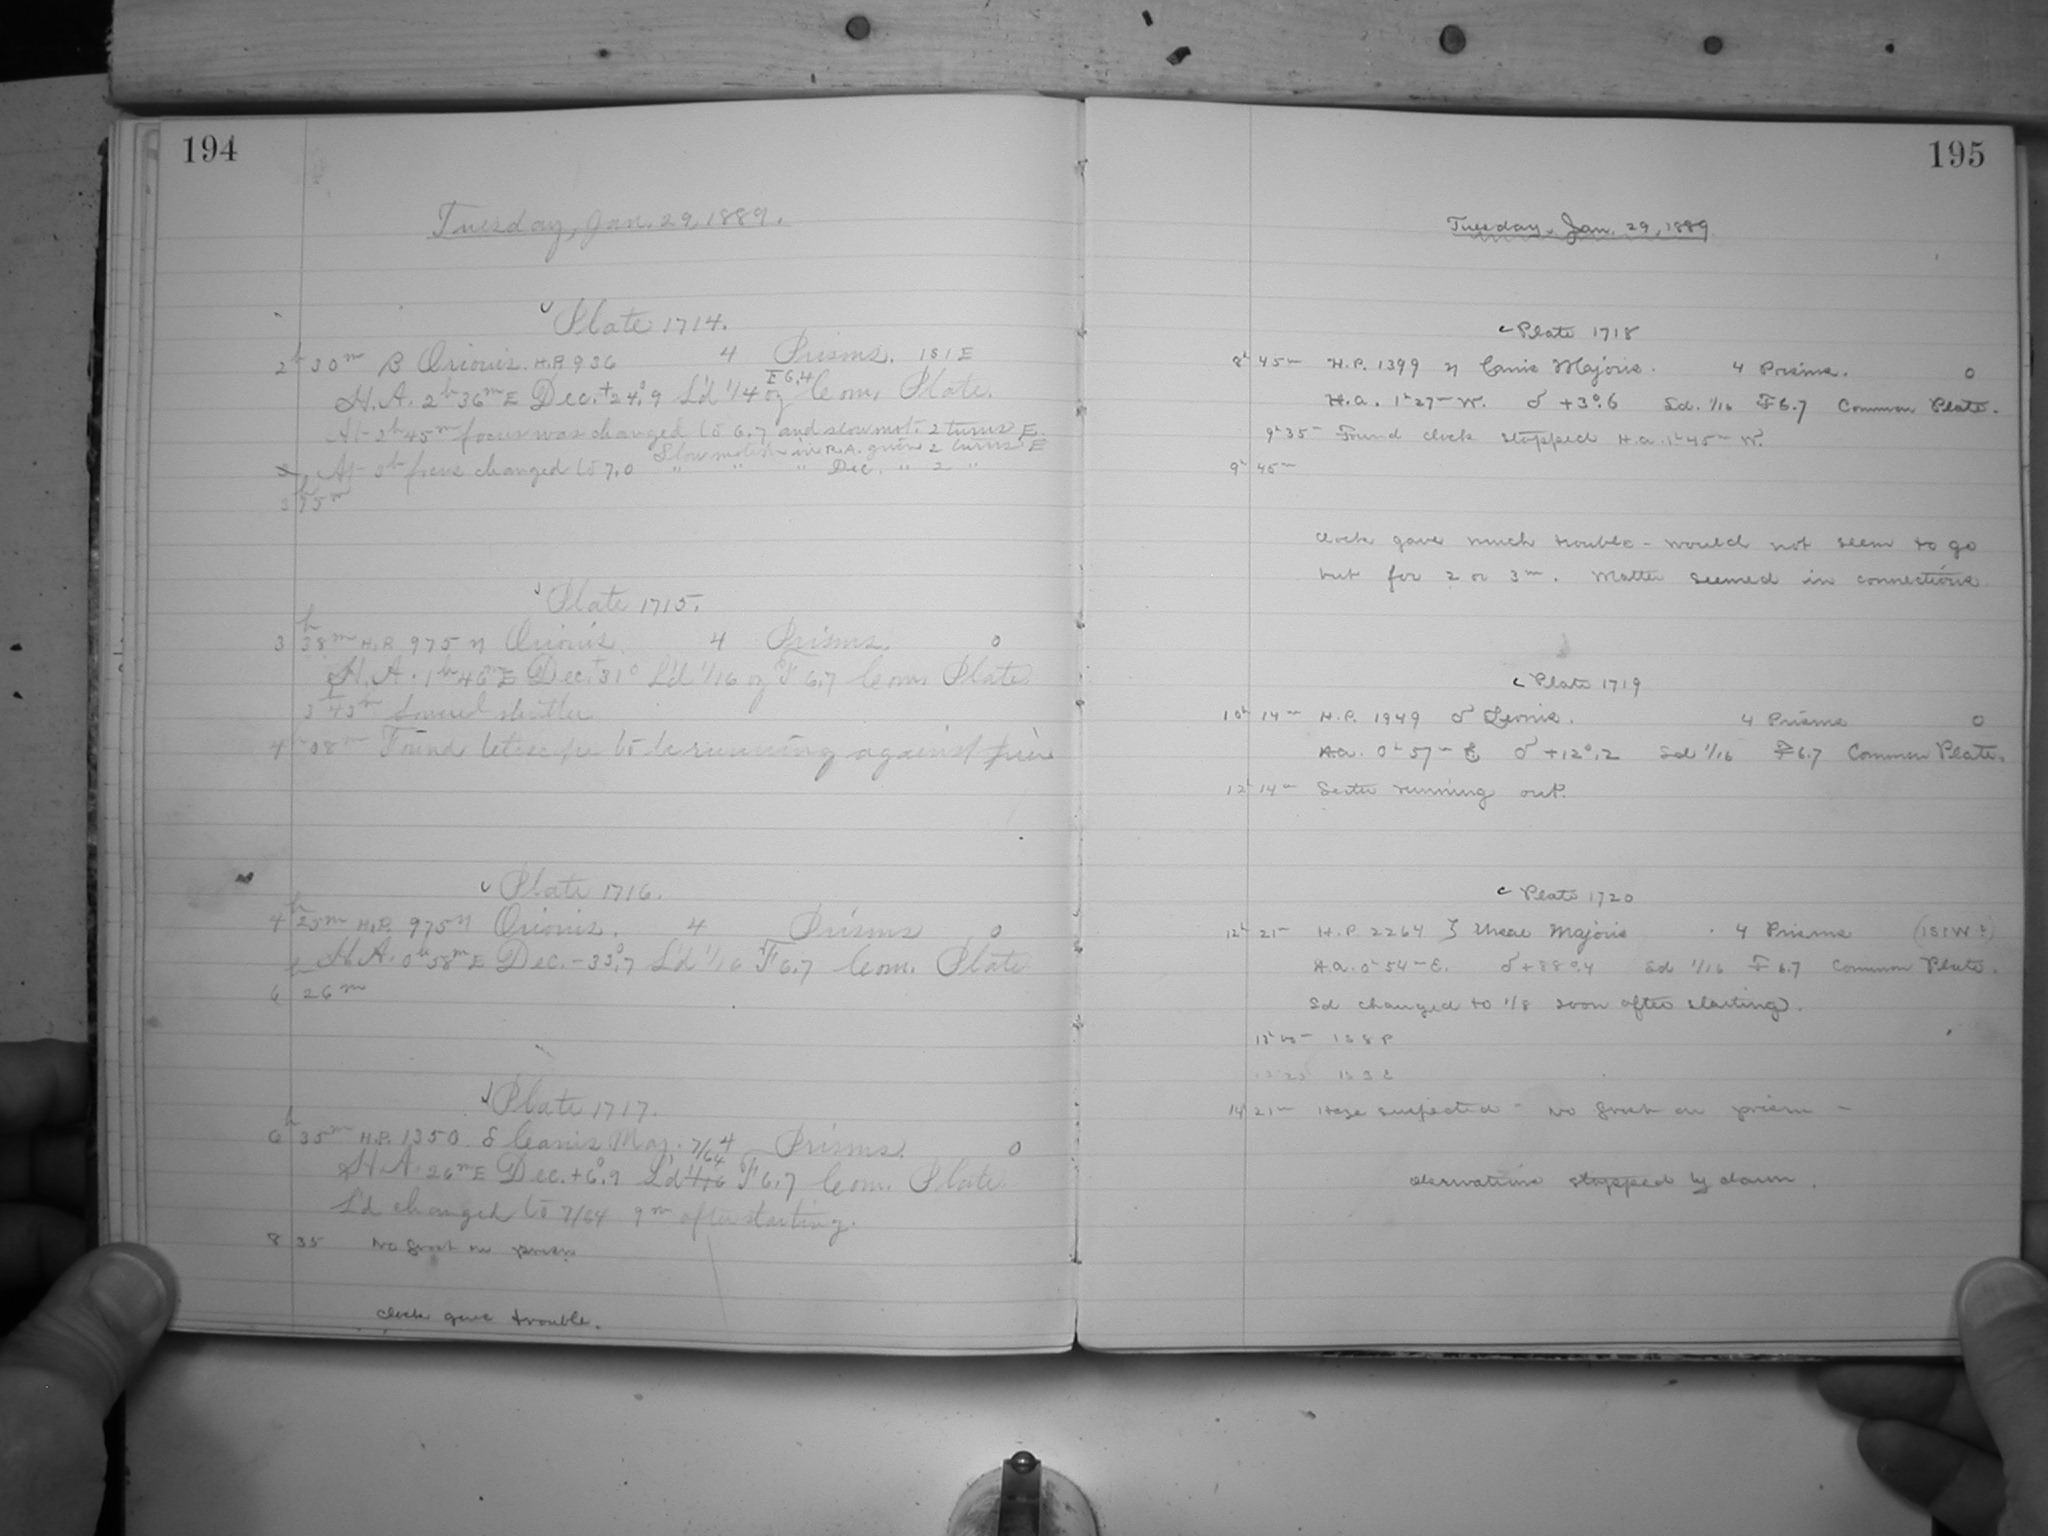 194
Tuesday, Jan. 29, 1889.
Plate 1714.
2h 30m β Orionis. H.P. 936 4 Prisms. 1S1E
H.A. 2h 36m E Dec. +24°.9 S'd 1/4 oz F 6.4 Com. Plate.
At 2h 45m focus was changed to 6.7 and slow mot. 2 turns E.
Slow motion in R.A. given 2 turns E
At 3h focus changed to 7.0 " " " Dec. " 2 "
3h 5m
Plate 1715.
3h 38m H.P. 975 η Orionis. 4 Prisms. 0
H.A. 1h 46m E Dec. +31° S'd 1/16 oz F 6.7 Com. Plate
3 43m Lowered shutter
4 08m Found telescope to be running against pier
Plate 1716.
4h 25m H.P. 975 η Orionis. 4 Prisms 0
H.A. 0h 58m E Dec. -33°.7 S'd 1/16 F 6.7 Com. Plate
6h 26m
Plate 1717.
6h 35m H.P. 1350 δ Canis Maj. 4 Prisms. 0
7/64
H.A. 26m E Dec. +6°.9 S'd 1/16 F 6.7 Com. Plate
S'd changed to 7/64 9m after starting.
8 35 No frost on prism
Clock gave trouble.
195
Tuesday, Jan. 29, 1889
Plate 1718
8h 45m H.P. 1399 η Canis Majoris. 4 Prisms. 0
H.a. 1h 27m W. δ +3°.6 Sd. 1/16 F 6.7 Common Plate.
9h 35m Found clock stopped H.a. 1h 45m W.
9h 45m
Clock gave much trouble - would not seem to go
but for 2 or 3m. Matter seemed in connections
Plate 1719
10h 14m H.P. 1949 δ Leonis. 4 Prisms 0
H.a. 0h 57m E δ +12°.2 Sd 1/16 F 6.7 Common Plate.
12h 14m Sector running out.
Plate 1720
12h 21m H.P. 2264 ζ Ursae Majoris 4 Prisms (1S1W?)
H.a. 0h 54m E. δ +88°.4 Sd 1/16 F 6.7 Common Plate.
Sd changed to 1/8 soon after starting.
14h 21m Haze suspected - No frost on prism -
Observations stopped by dawn.